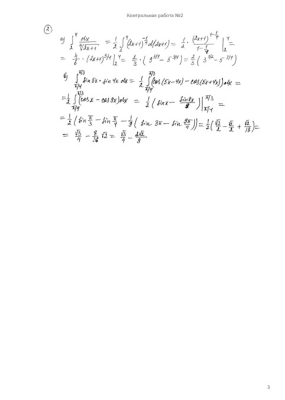 Контрольная работа №2
②
а) ∫₂⁴ dx/∜(2x+1) = 1/2 ∫₂⁴ (2x+1)^(-1/4) d(2x+1) = 1/2 · (2x+1)^(1-1/4)/(1-1/4) |₂⁴ =
= 4/6 · (2x+1)^(3/4) |₂⁴ = 2/3 · (9^(3/4) - 5^(3/4)) = 2/3 (3^(3/2) - 5^(3/4))
б) ∫_(π/4)^(π/3) sin 5x · sin 4x dx = 1/2 ∫_(π/4)^(π/3) (cos(5x-4x) - cos(5x+4x)) dx =
= 1/2 ∫_(π/4)^(π/3) (cos x - cos 9x) dx = 1/2 (sin x - sin 9x/9) |_(π/4)^(π/3) =
= 1/2 (sin π/3 - sin π/4 - 1/9 (sin 3π - sin 9π/4)) = 1/2 (√3/2 - √2/2 + √2/18) =
= √3/4 - 8/36 √2 = √3/4 - 2√2/9
5